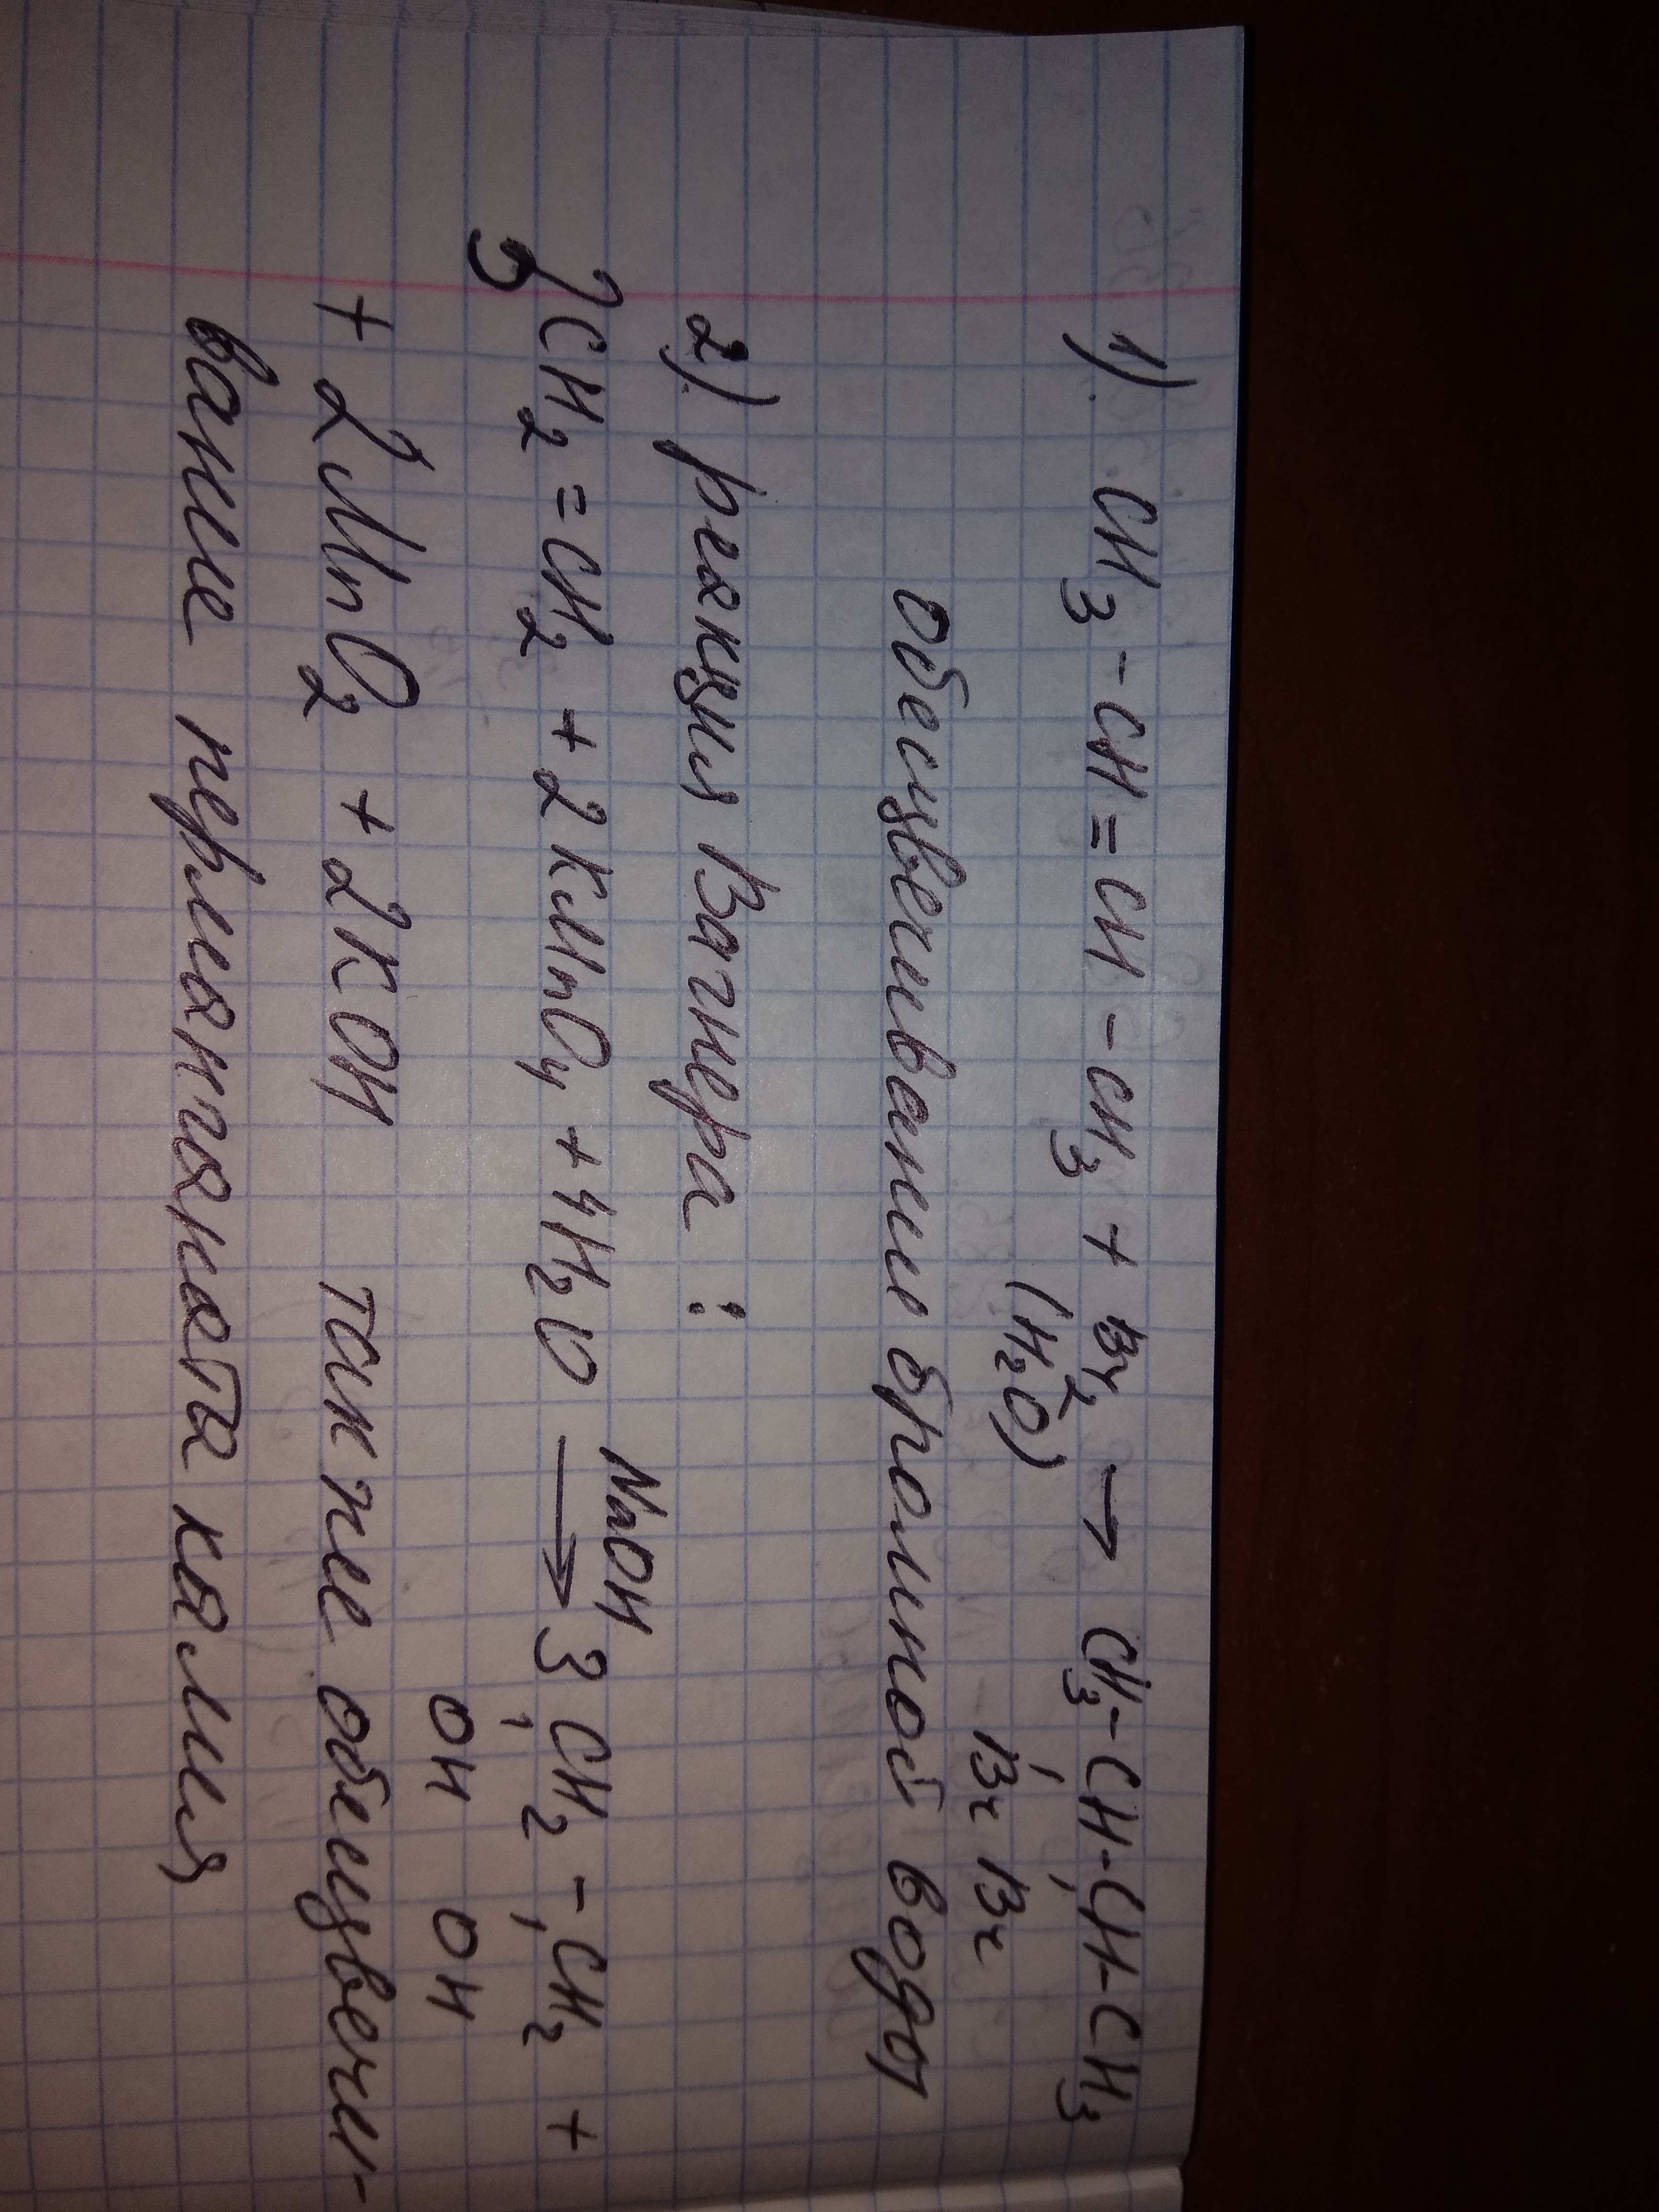 1). CH3 - CH = CH - CH3 + Br2 → CH3 - CH - CH - CH3
(H2O) Br Br
обесцвечивание бромной воды
2) реакция Вагнера :
3CH2 = CH2 + 2KMnO4 + 4H2O NaOH → 3 CH2 - CH2 +
OH OH
+ 2MnO2 + 2KOH также обецвечи-
вание перманганата калия